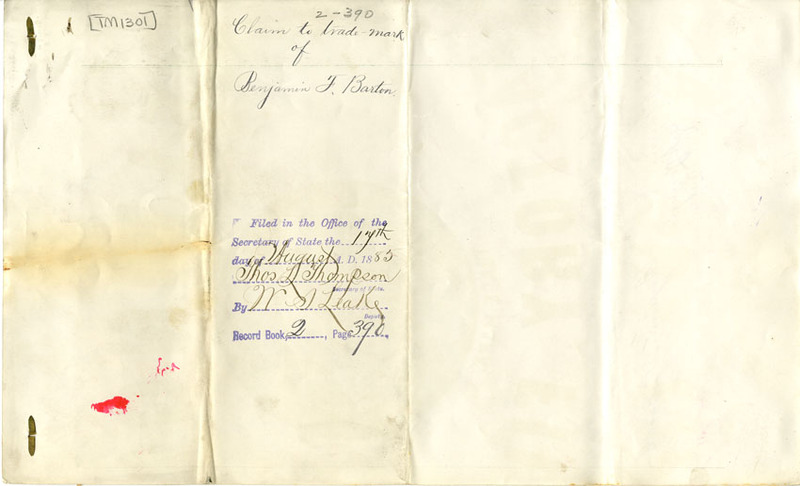 [TM1301]
2-390
Claim to trade-mark
of
Benjamin F. Barton.
Filed in the Office of the
Secretary of State the 17th
day of August A. D. 1885
Thos L Thompson
Secretary of State.
By W
Deputy.
Record Book, 2, Page 390.